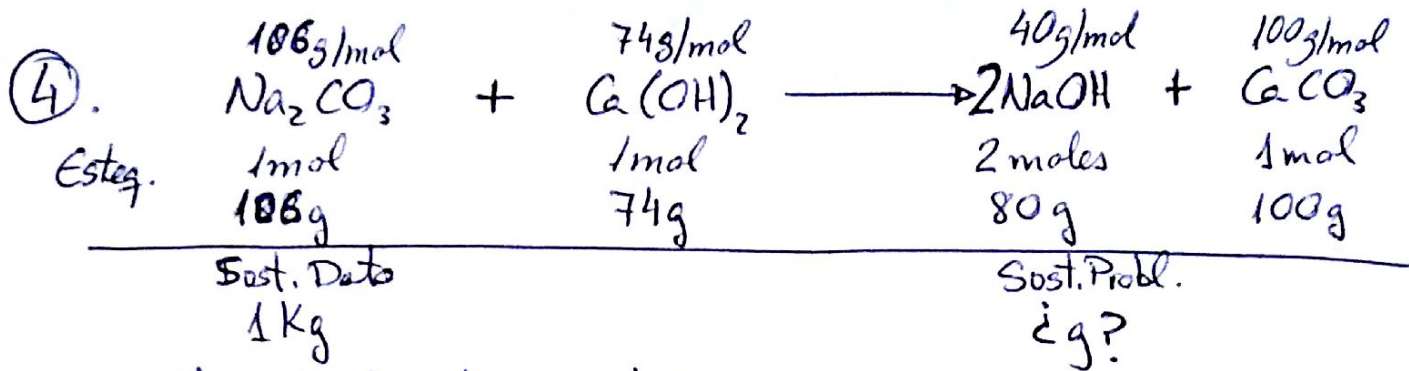 106g/mol 74g/mol 40g/mol 100g/mol
④. Na₂CO₃ + Ca(OH)₂ ⟶ 2NaOH + CaCO₃
Esteq. 1mol 1mol 2 moles 1mol
106g 74g 80g 100g
Sust. Dato Sust. Probl.
1Kg ¿g?